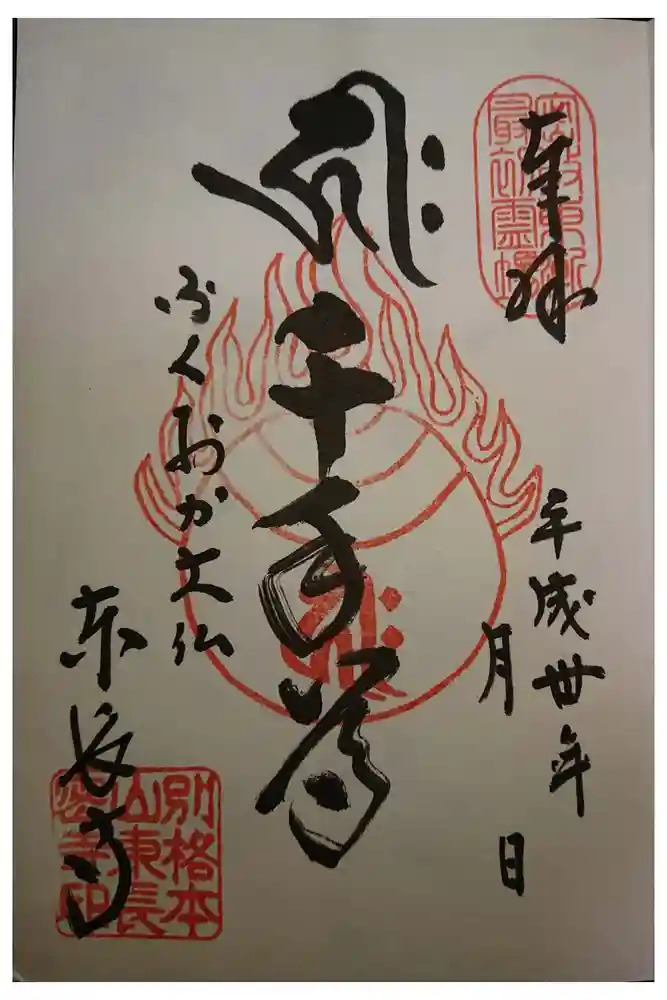 奉拝
最初霊場
平成卅年
月 日
ह्रीः
千手尊
ह्रीः
ふくおか大仏
東長寺
別格本
山東長
密寺印